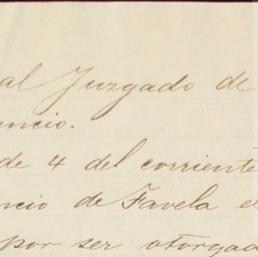 al Juzgado de
uncio.
de 4 del corriente
ncio de Favela e
por ser otorgad